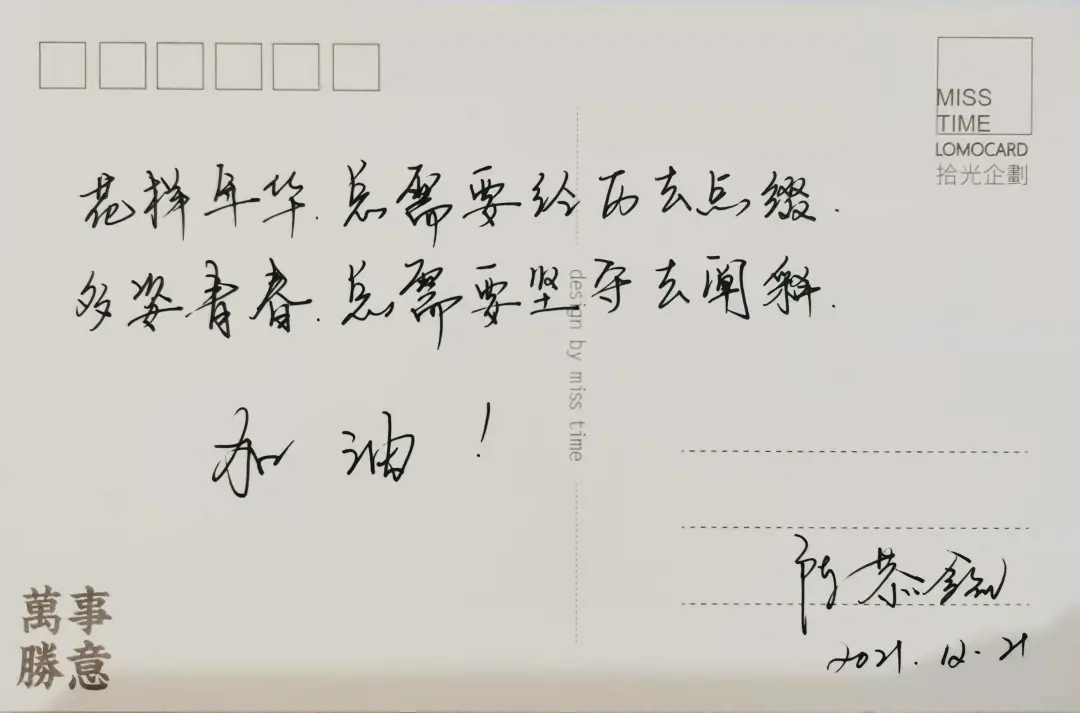 MISS
TIME
LOMOCARD
拾光企劃
花样年华.总需要经历去点缀.
多姿青春.总需要坚守去阐释.
加油!
design by miss time
陈恭
2021.12.21
萬事
勝意